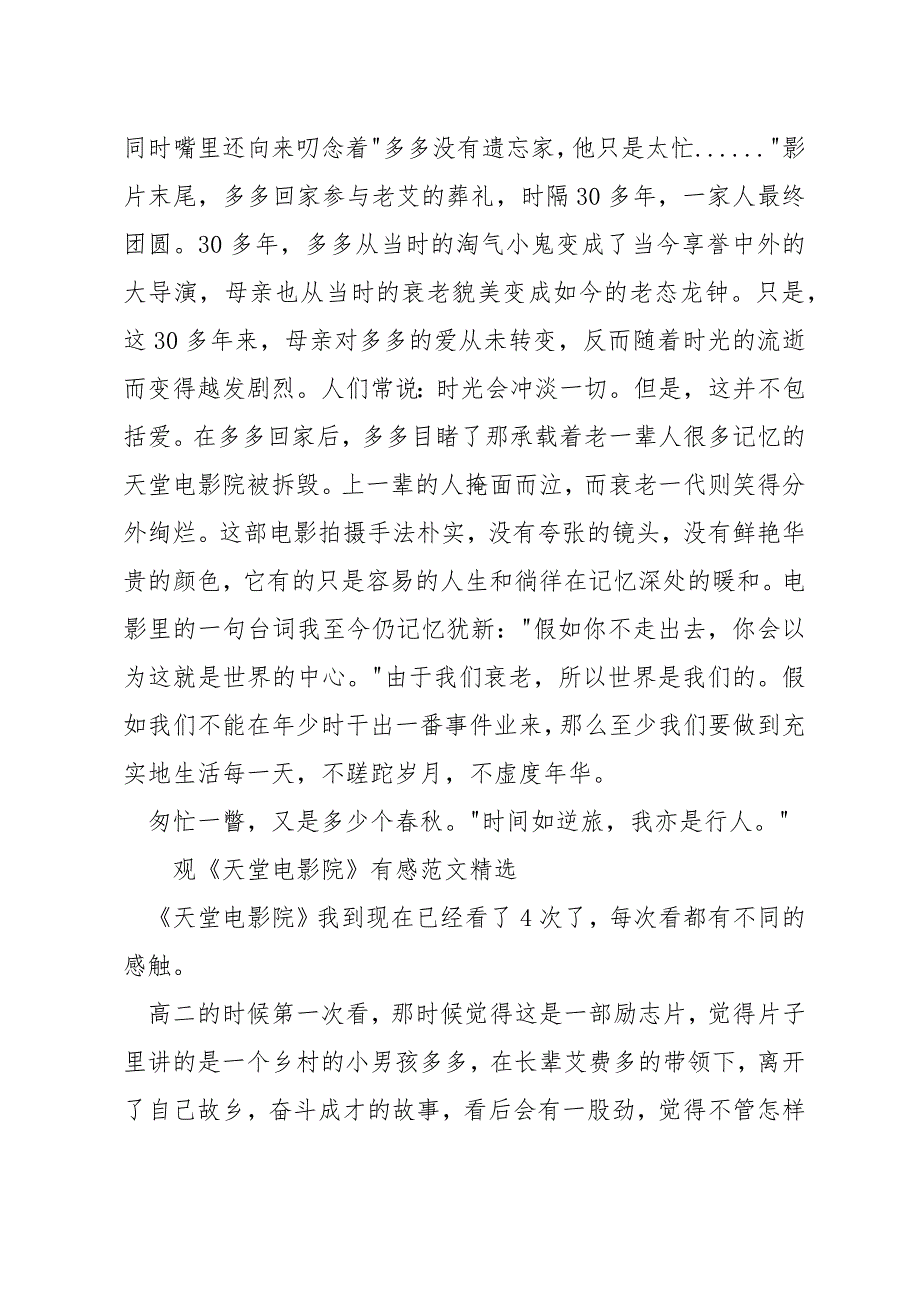 同时嘴里还向来叨念着"多多没有遗忘家，他只是太忙......"影
片末尾，多多回家参与老艾的葬礼，时隔 30 多年，一家人最终
团圆。30 多年，多多从当时的淘气小鬼变成了当今享誉中外的
大导演，母亲也从当时的衰老貌美变成如今的老态龙钟。只是，
这 30 多年来，母亲对多多的爱从未转变，反而随着时光的流逝
而变得越发剧烈。人们常说：时光会冲淡一切。但是，这并不包
括爱。在多多回家后，多多目睹了那承载着老一辈人很多记忆的
天堂电影院被拆毁。上一辈的人掩面而泣，而衰老一代则笑得分
外绚烂。这部电影拍摄手法朴实，没有夸张的镜头，没有鲜艳华
贵的颜色，它有的只是容易的人生和徜徉在记忆深处的暖和。电
影里的一句台词我至今仍记忆犹新："假如你不走出去，你会以
为这就是世界的中心。"由于我们衰老，所以世界是我们的。假
如我们不能在年少时干出一番事件业来，那么至少我们要做到充
实地生活每一天，不蹉跎岁月，不虚度年华。
匆忙一瞥，又是多少个春秋。"时间如逆旅，我亦是行人。"
观《天堂电影院》有感范文精选
《天堂电影院》我到现在已经看了 4 次了，每次看都有不同的
感触。
高二的时候第一次看，那时候觉得这是一部励志片，觉得片子
里讲的是一个乡村的小男孩多多，在长辈艾费多的带领下，离开
了自己故乡，奋斗成才的故事，看后会有一股劲，觉得不管怎样